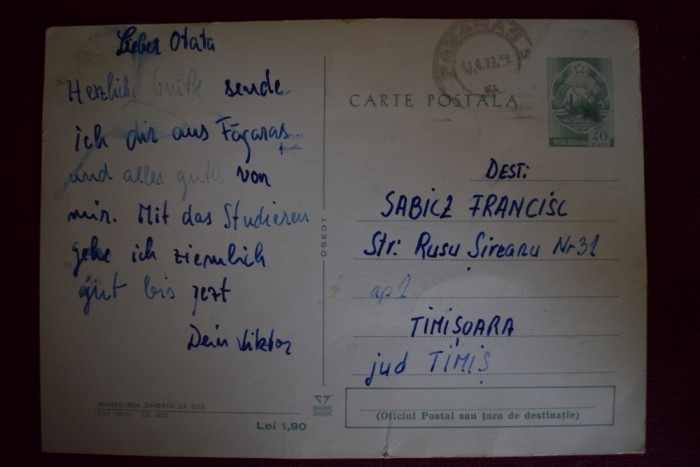 Lieber Otata
Herzliche Grüße sende
ich dir aus Făgăraș
und alles gutes von
mir. Mit das Studieren
gehe ich ziemlich
gut bis jezt
Dein Viktor
MANASTIREA SIMBATA DE SUS
Lei 1,90
OSEDT
CARTE POSTALA
40
DEST:
SABICZ FRANCISC
Str: Rusu Șireanu Nr 31
ap 2
TIMIȘOARA
jud TIMIȘ
(Oficiul Postal sau țara de destinație)